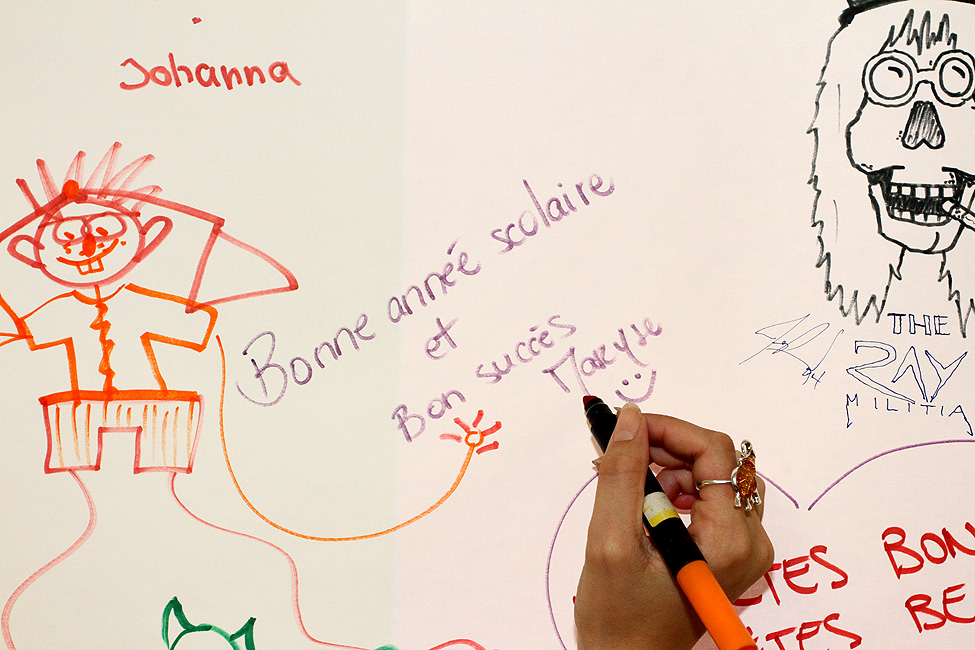 Johanna
Bonne année scolaire
et
Bon succès
Maryse
THE
RAY
MILITIA
TES BON
TES BE